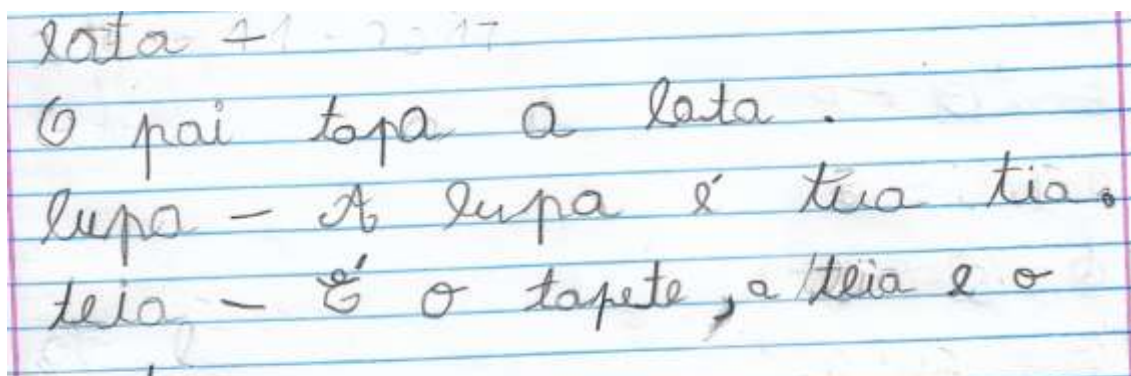 lata -
O pai tapa a lata.
lupa - A lupa é tua tia.
teia - É o tapete, a teia e o